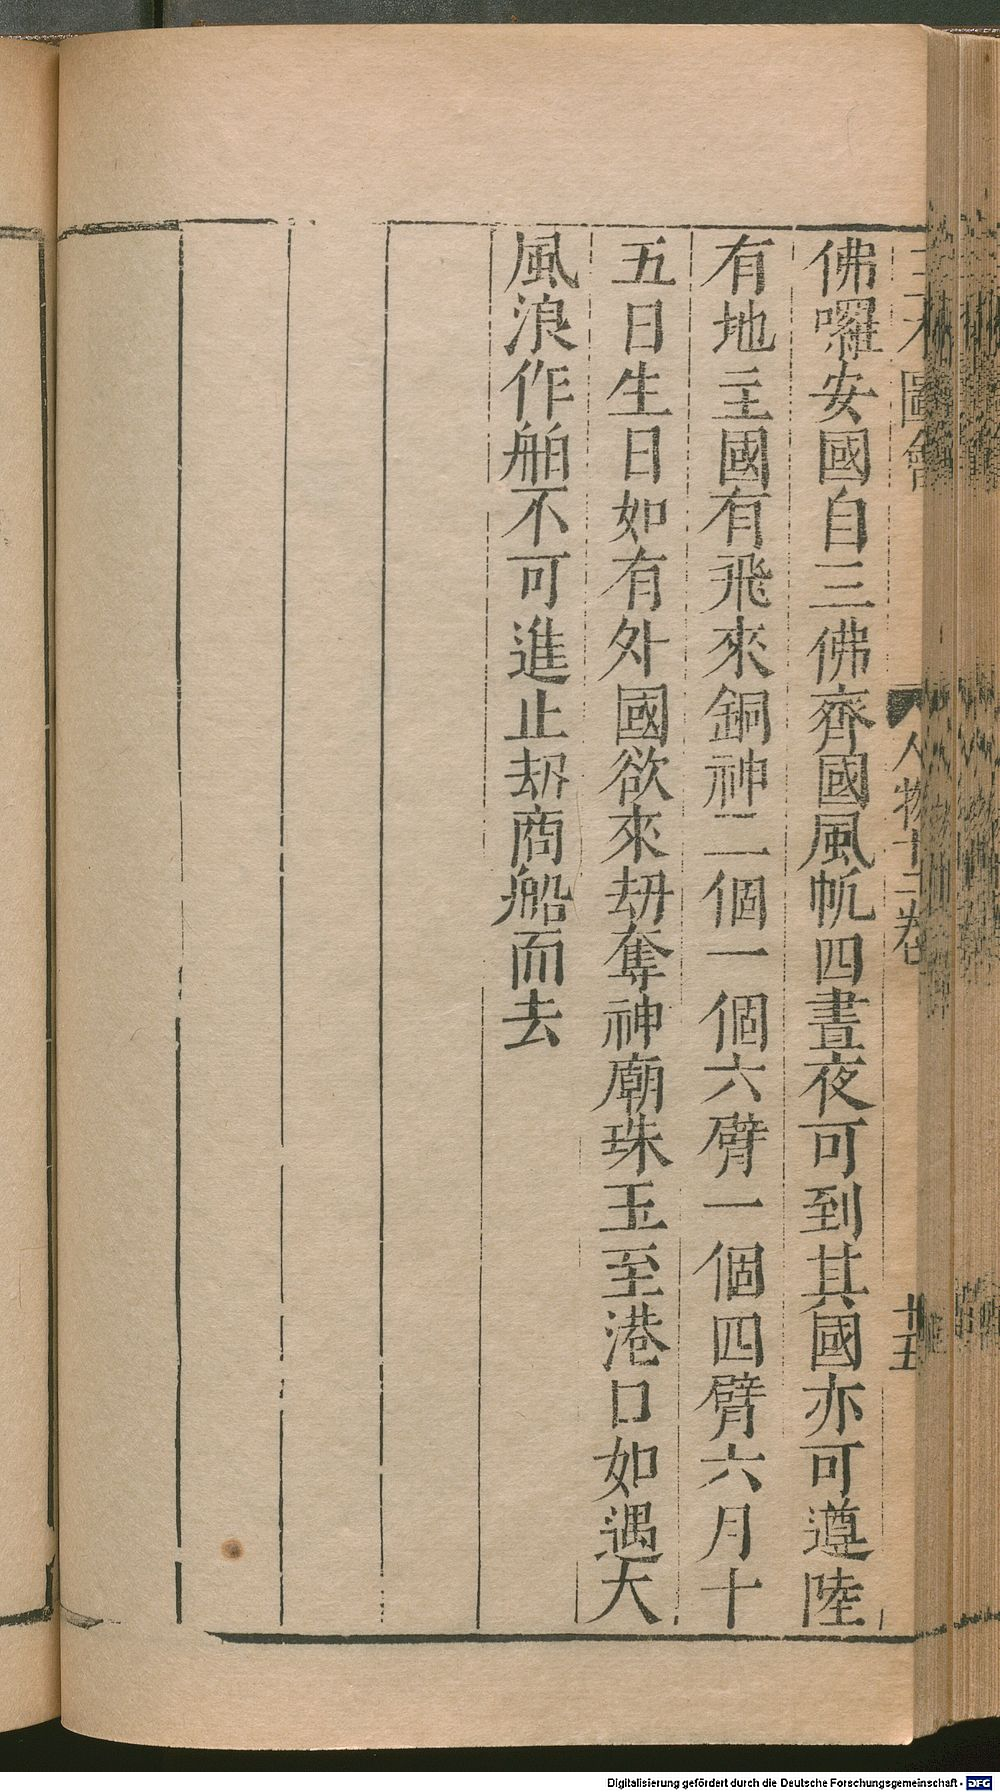 三才圖會 人物十二卷 十五
佛囉安國自三佛齊國風帆四晝夜可到其國亦可遵陸
有地主國有飛來銅神二個一個六臂一個四臂六月十
五日生日如有外國欲來刼奪神廟珠玉至港口如遇大
風浪作舶不可進止刼商船而去
Digitalisierung gefördert durch die Deutsche Forschungsgemeinschaft - DFG